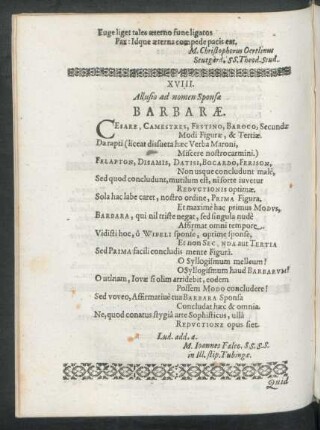 Euge liget tales æterno fune ligatos
Pax: Idque æterna compede pacis est.
M. Christophorus Oertlinus
Stutgard. SS. Theod. Stud.
XVIII.
Allusio ad nomen Sponsæ
BARBARÆ.
CESARE, CAMESTRES, FESTINO, BAROCO, Secundæ
Modi Figuræ, & Tertiæ.
Darapti (liceat dissueta hæc Verba Maroni,
Miscere nostro carmini.)
FELAPTON, DISAMIS, DATISI, BOCARDO, FERISON,
Non usque concludunt malé,
Sed quod concludunt, mutilum est, ni forte juvetur
REDUCTIONIS optimæ.
Sola hac labe caret, nostro ordine, PRIMA Figura.
Et maximè hac primus MODUS,
BARBARA, qui nil triste negat, sed singula nudè
Affirmat omni tempore.
Vidisti hoc, ô WIBELI sponse, optime sponse,
Et non SECUNDA aut TERTIA
Sed PRIMA facili concludis mente Figurâ.
O Syllogismum melleum!
O Syllogismum haud BARBARUM!
O utinam, Iova si olim arridebit, eodem
Possem MODO concludere!
Sed voveo, Affirmativè tua BARBARA Sponsa
Concludat hæc & omnia.
Ne, quod conatus stygiâ arte Sophisticus, ullâ
REDUCTIONE opus siet.
Lud. add. a.
M. Joannes Falco. SS. S. S.
in ill. stip. Tubingæ.
Quid